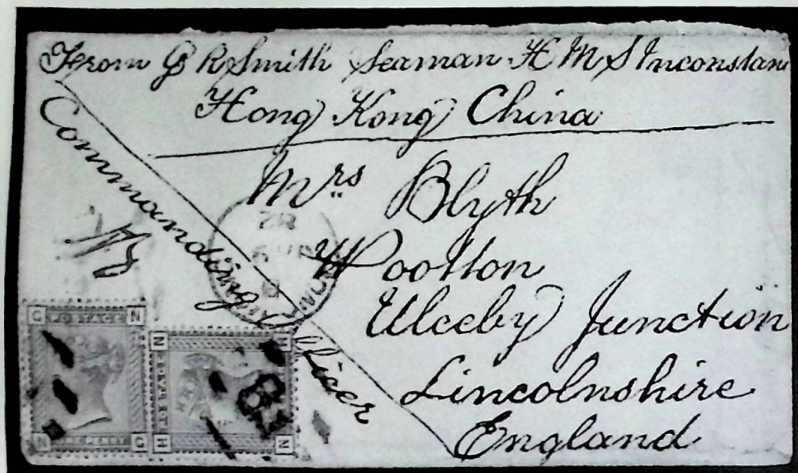 From G R Smith Seaman H M S Inconstan
Hong Kong China
Commanding Officer
Mrs Blyth
Wootton
Ulceby Junction
Lincolnshire
England
G POSTAGE N
N ONE PENNY G
H N
N H